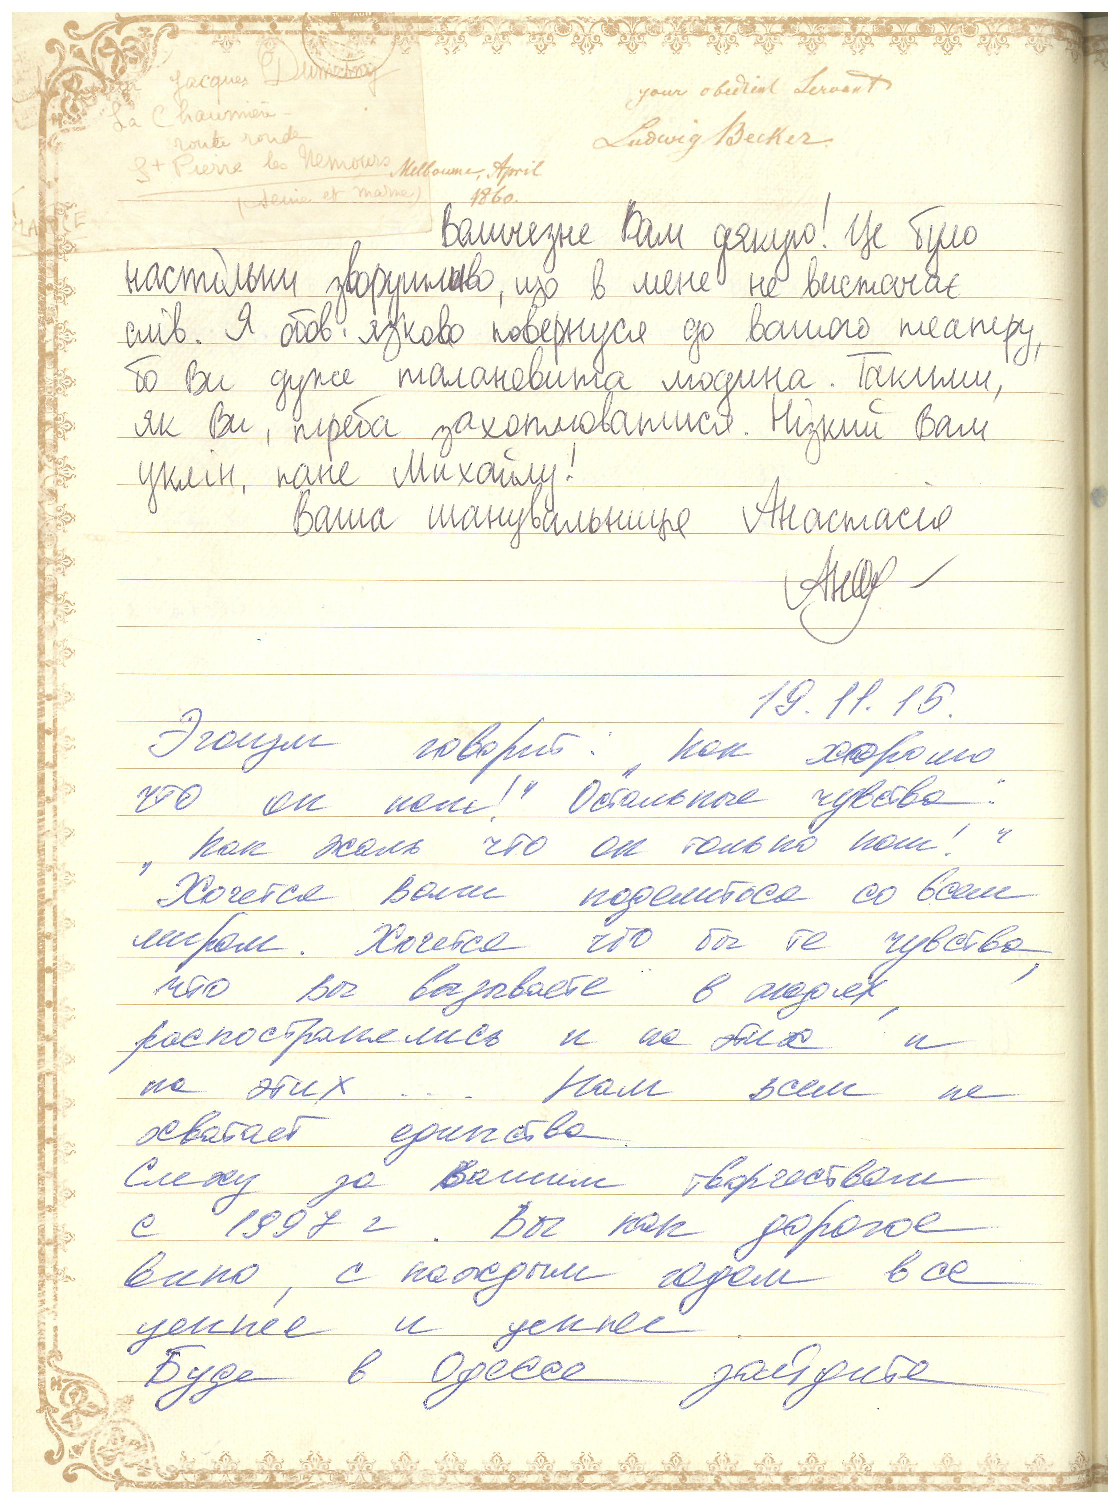 Jacques Dumesnij
La Chaumière
route ronde
St Pierre les Nemours
(Seine et Marne)
your obedient Servant
Ludwig Becker.
Melbourne, April
1860.
Величезне Вам дякую! Це було
настільки зворушливо, що в мене не вистачає
слів. Я обов'язково повернуся до вашого театру,
бо Ви дуже талановита людина. Такими,
як Ви, треба захоплюватися. Низкий Вам
уклін, пане Михайлу!
Ваша шанувальниця Анастасія
19.11.15.
Эгоизм говорит: „Как хорошо
что он наш!“ Остальные чувства:
„Как жаль что он только наш!“
Хочется Вами поделиться со всем
миром. Хочется что бы те чувства,
что Вы вызываете в людях,
распостранялись и на тех и
на этих ... Нам всем не
хватает единства
Слежу за Вашим творчеством
с 1997 г. Вы как дорогое
вино, с каждым годом все
ценнее и ценнее
Буде в Одессе зайдите